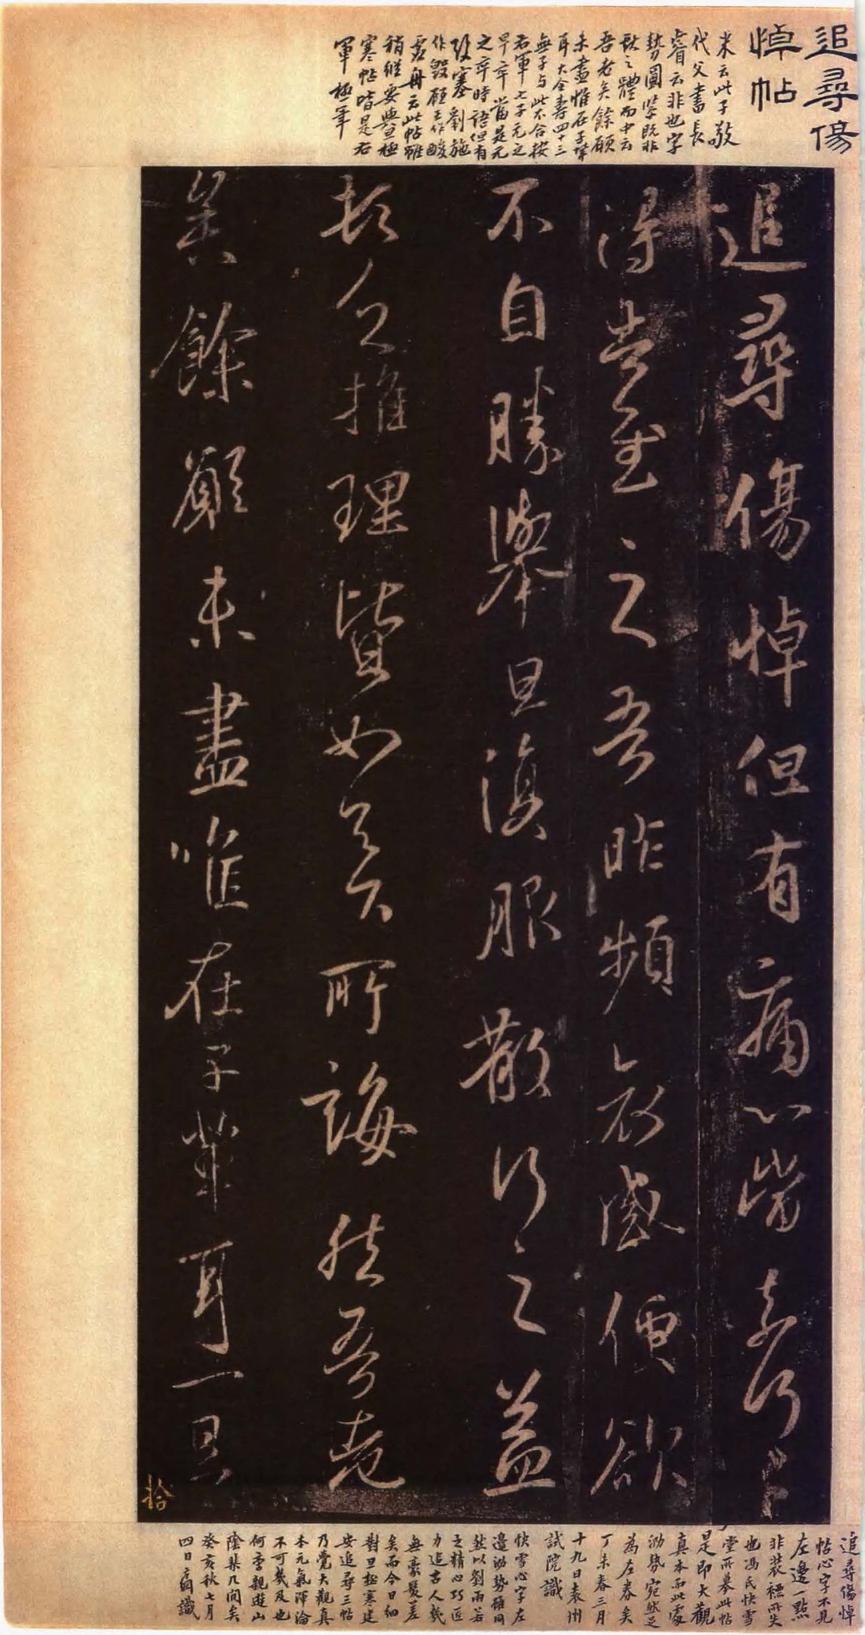 追尋傷
悼帖
米云此子敬
代父書長
睿云非也字
勢圓緊既非
獻之體而中云
吾老矣餘願
未盡惟在子輩
耳大令壽四十三
無子与此不合按
右軍七子元之
早卒當是元
之卒時語但有
塞劉施
作毀顧王作酸
虛舟云此帖雖
稍縱要與極
寒帖皆是右
軍極筆
追尋傷悼但有痛心當奈何〻
得告慰之吾昨頻哀感便欲
不自勝舉旦復服散行之益
頓乏推理皆如足下所誨然吾老
矣餘願未盡唯在子輩耳一旦
拾
追尋傷悼
帖心字不見
左邊一點
非裝褾所失
也馮氏快雪
堂所摹此帖
是即大觀
真本而此處
泐勢宛然足
為左券矣
丁未春三月
十九日袁州
試院識
快雪心字左
邊泐勢雖同
然以劉雨若
之精心巧匠
力追古人幾
無豪髮差
矣而今日細
對旦極寒建
安追尋三帖
乃覺大觀真
本元氣渾淪
不可幾及也
何季親遊山
陰棐几間矣
癸亥秋七月
四日識